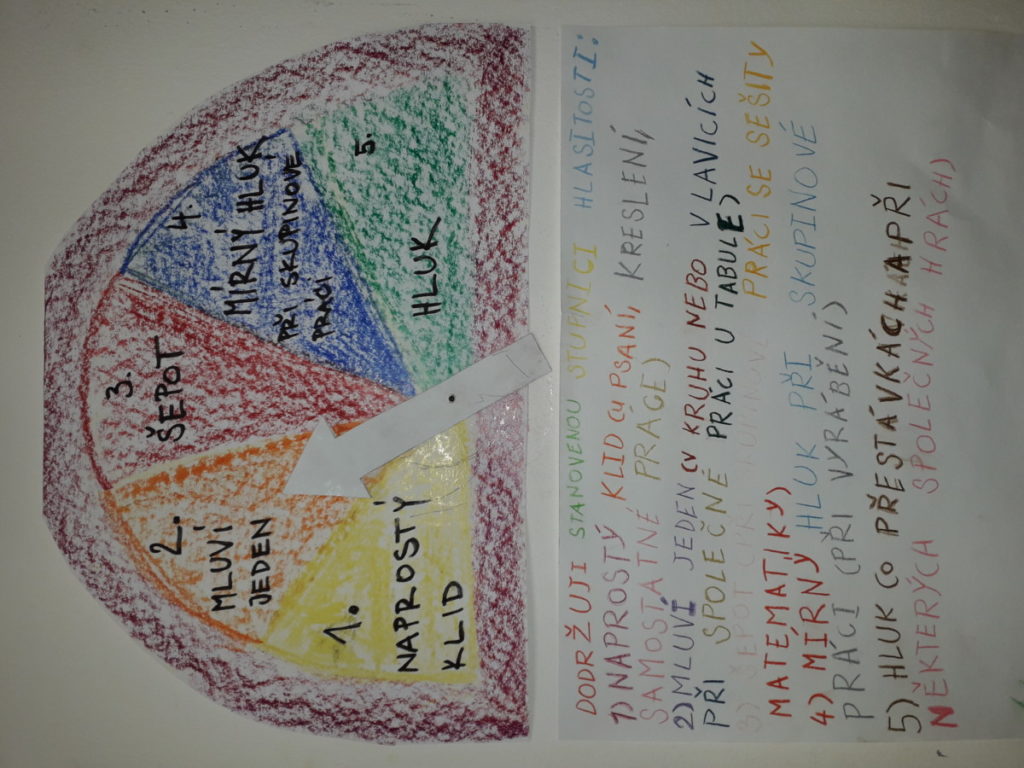 1.
NAPROSTÝ
KLID
2.
MLUVÍ
JEDEN
3.
ŠEPOT
4.
MÍRNÝ HLUK
PŘI SKUPINOVÉ
PRÁCI
5.
HLUK
DODRŽUJI STANOVENOU STUPNICI HLASITOSTI:
1) NAPROSTÝ KLID (U PSANÍ, KRESLENÍ,
SAMOSTATNÉ PRÁCE)
2) MLUVÍ JEDEN (V KRUHU NEBO V LAVICÍCH
PŘI SPOLEČNÉ PRÁCI U TABULE)
3) ŠEPOT (PŘI SKUPINOVÉ PRÁCI SE SEŠITY
MATÉMATIKY)
4) MÍRNÝ HLUK PŘI SKUPINOVÉ
PRÁCI (PŘI VYRÁBĚNÍ)
5) HLUK (O PŘESTÁVKÁCH A PŘI
NĚKTERÝCH SPOLEČNÝCH HRÁCH)